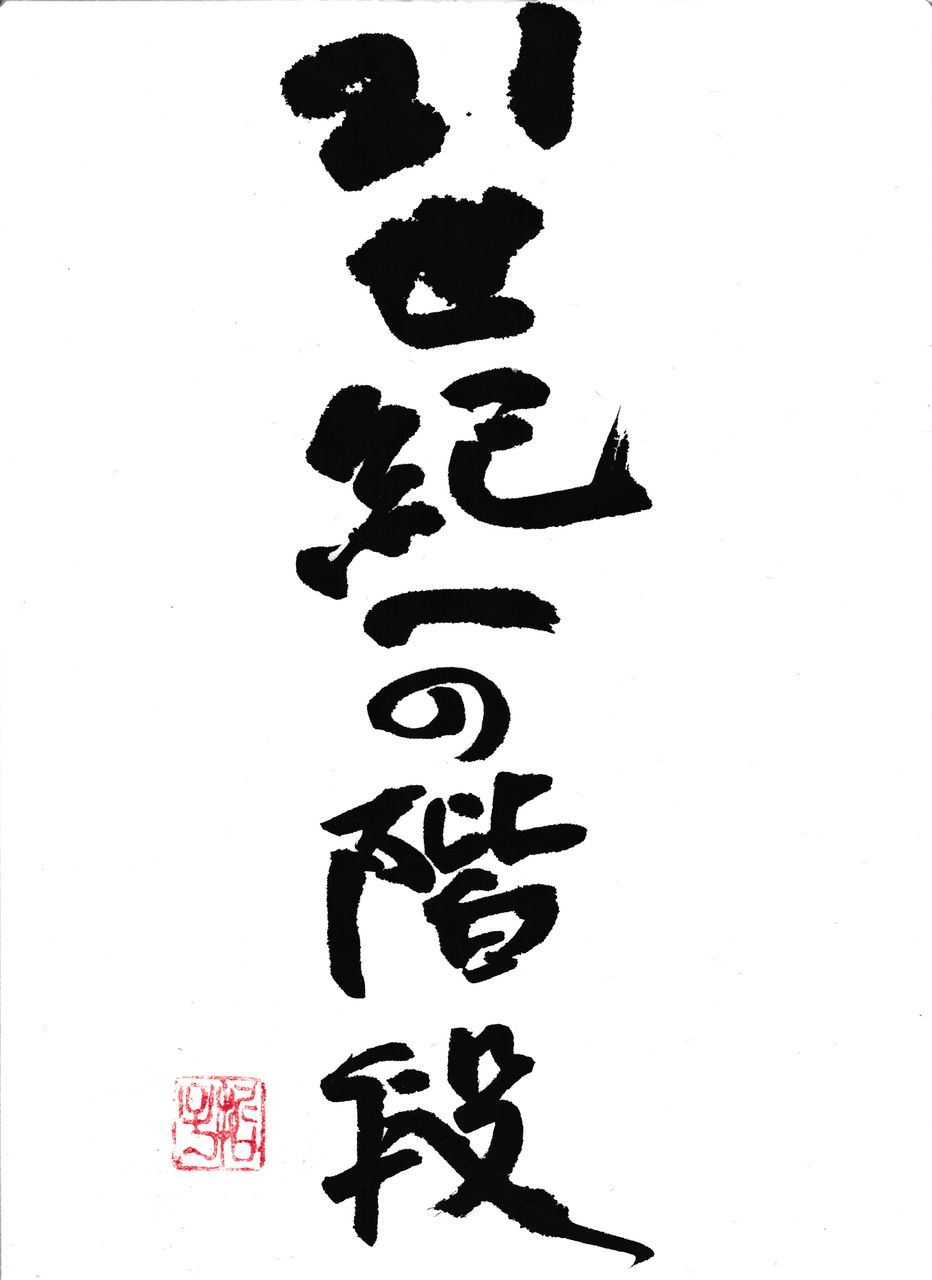 21世紀への階段